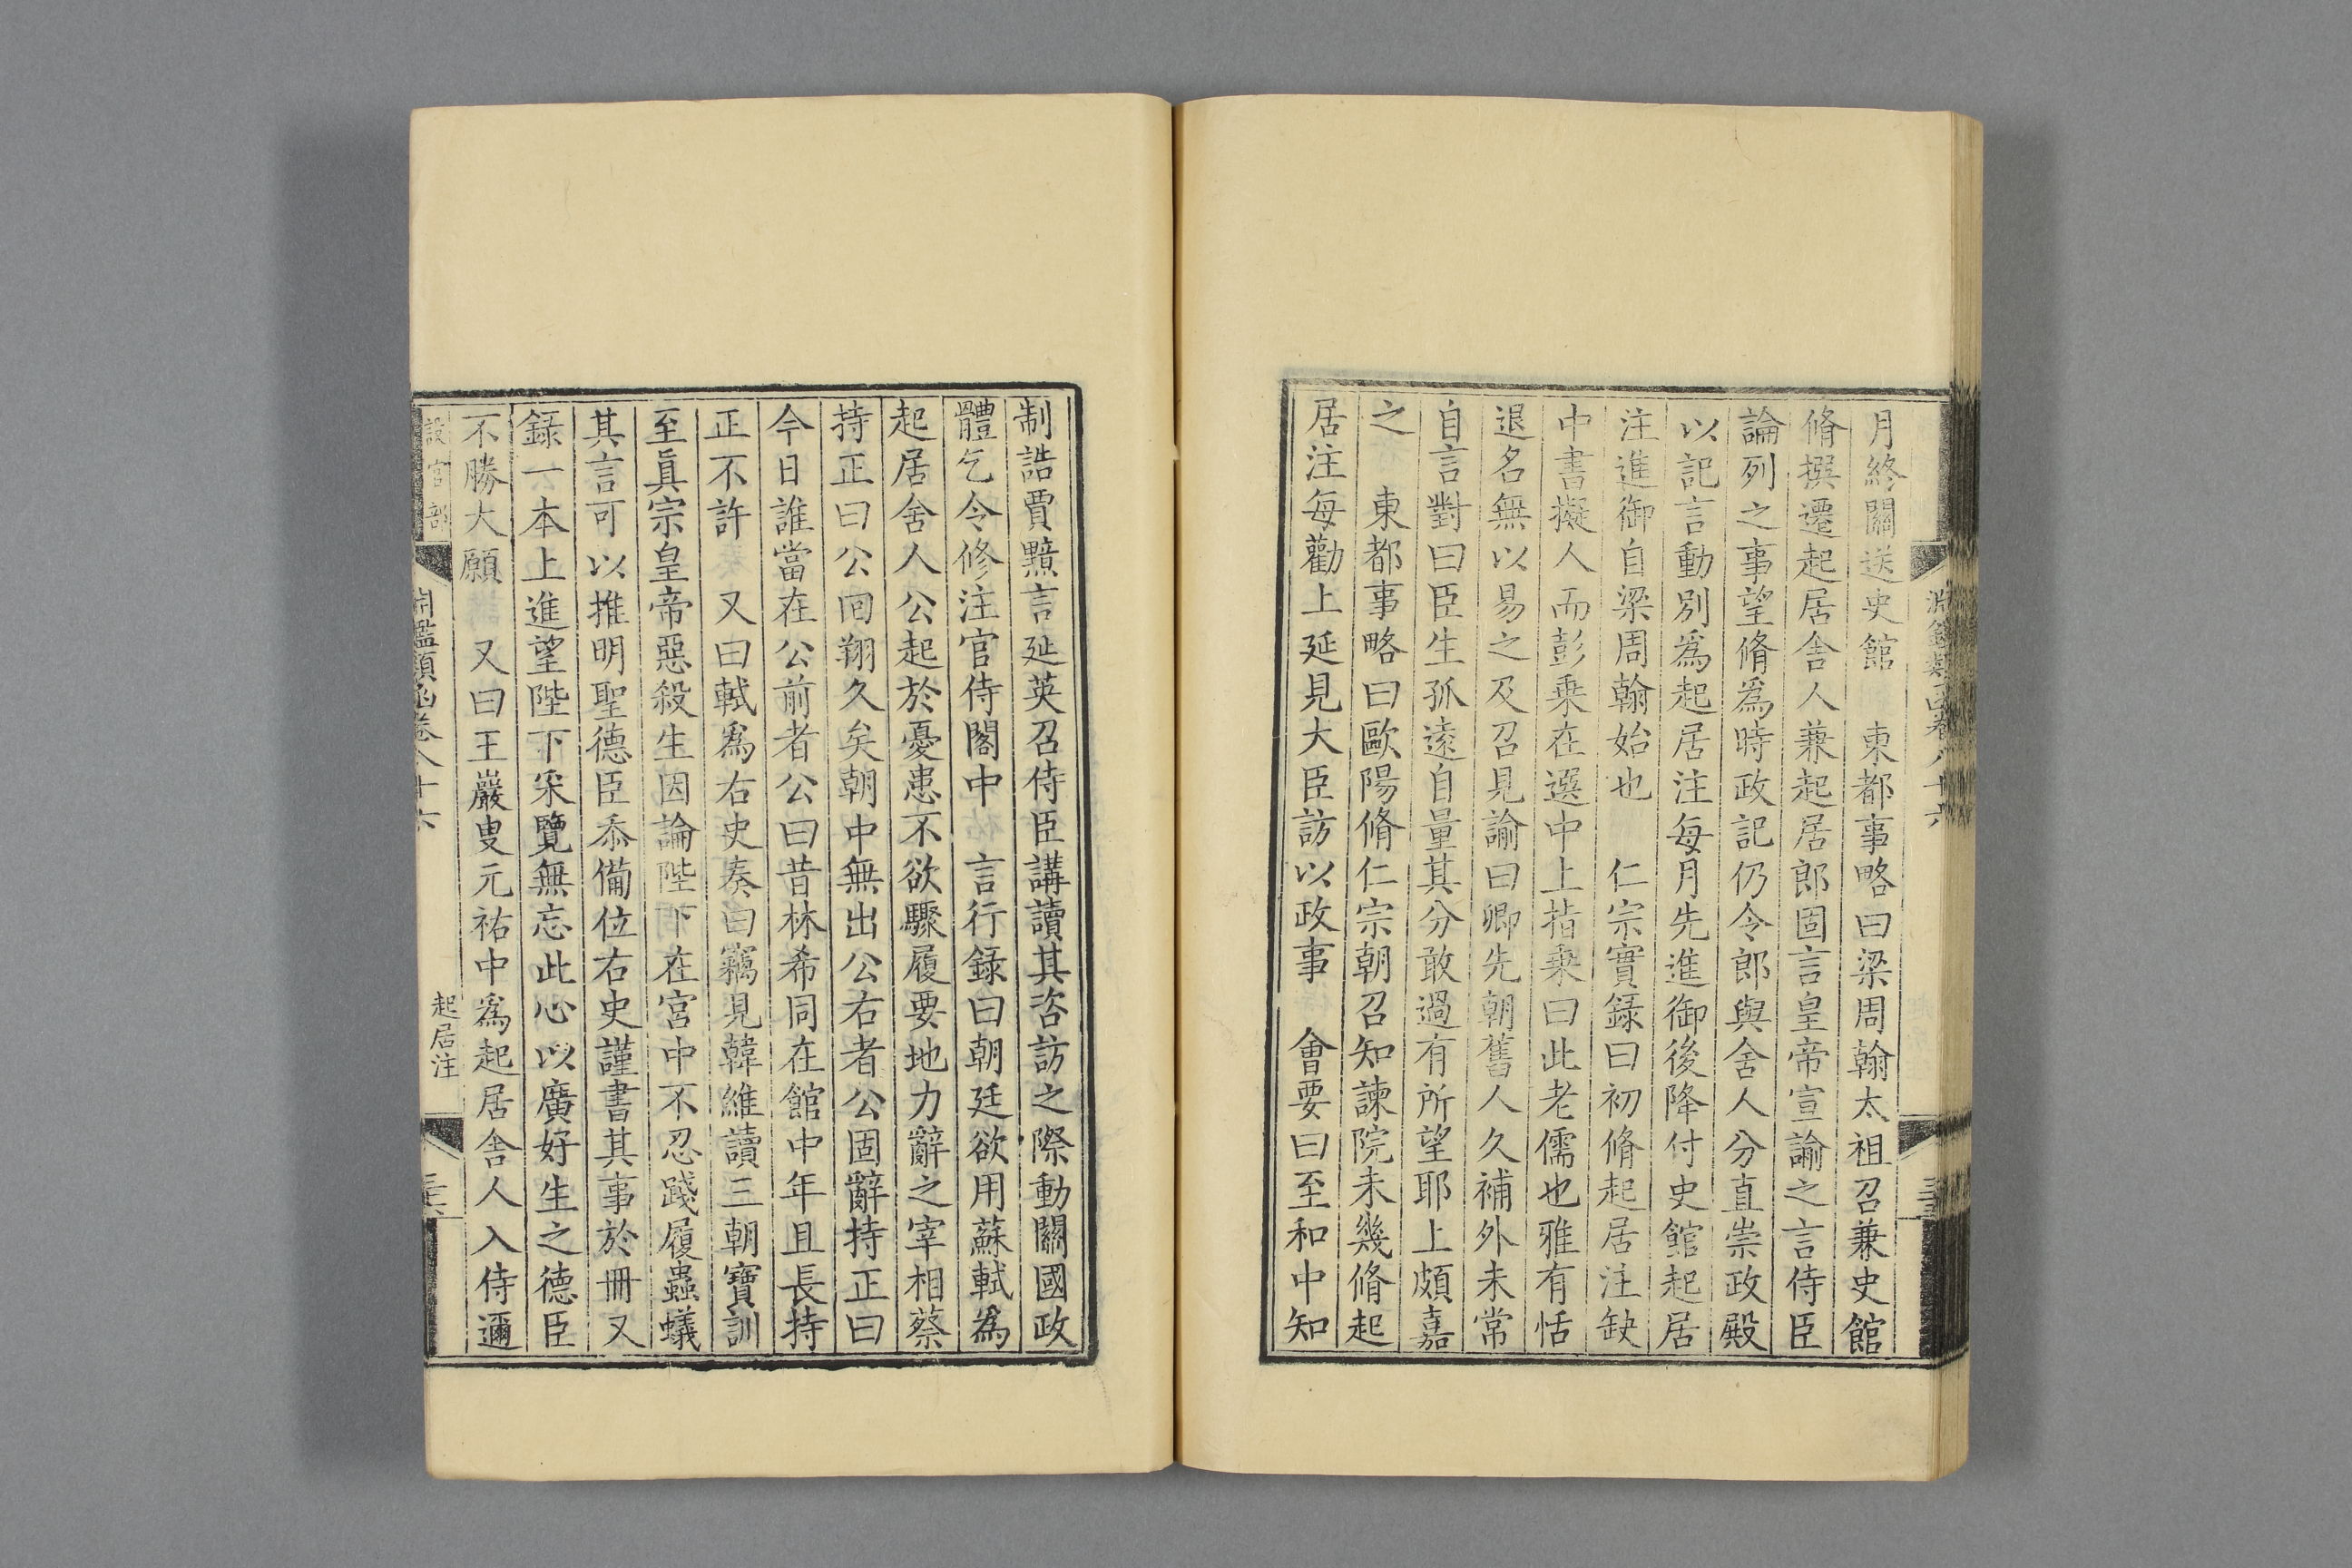 淵鑑類函卷八十六
月終關送史館　東都事略曰梁周翰太祖召兼史館
脩撰遷起居舍人兼起居郎固言皇帝宣諭之言侍臣
論列之事望脩爲時政記仍令郎與舍人分直崇政殿
以記言動別爲起居注每月先進御後降付史館起居
注進御自梁周翰始也　仁宗實錄曰初脩起居注缺
中書擬人而彭乗在選中上指乗曰此老儒也雅有恬
退名無以易之及召見諭曰卿先朝舊人久補外未常
自言對曰臣生孤遠自量其分敢過有所望耶上頗嘉
之　東都事略曰歐陽脩仁宗朝召知諫院未幾脩起
居注每勸上延見大臣訪以政事　會要曰至和中知
制誥賈黯言延英召侍臣講讀其咨訪之際動關國政
體乞令修注官侍閣中　言行錄曰朝廷欲用蘇軾爲
起居舍人公起於憂患不欲驟履要地力辭之宰相蔡
持正曰公囘翔久矣朝中無出公右者公固辭持正曰
今日誰當在公前者公曰昔林希同在館中年且長持
正不許　又曰軾爲右史奏曰竊見韓維讀三朝寶訓
至眞宗皇帝惡殺生因論陛下在宮中不忍踐履蟲蟻
其言可以推明聖德臣忝備位右史謹書其事於冊又
錄一本上進望陛下采覽無忘此心以廣好生之德臣
不勝大願　又曰王巖叟元祐中爲起居舍人入侍邇
設官部
淵鑑類函卷八十六
起居注